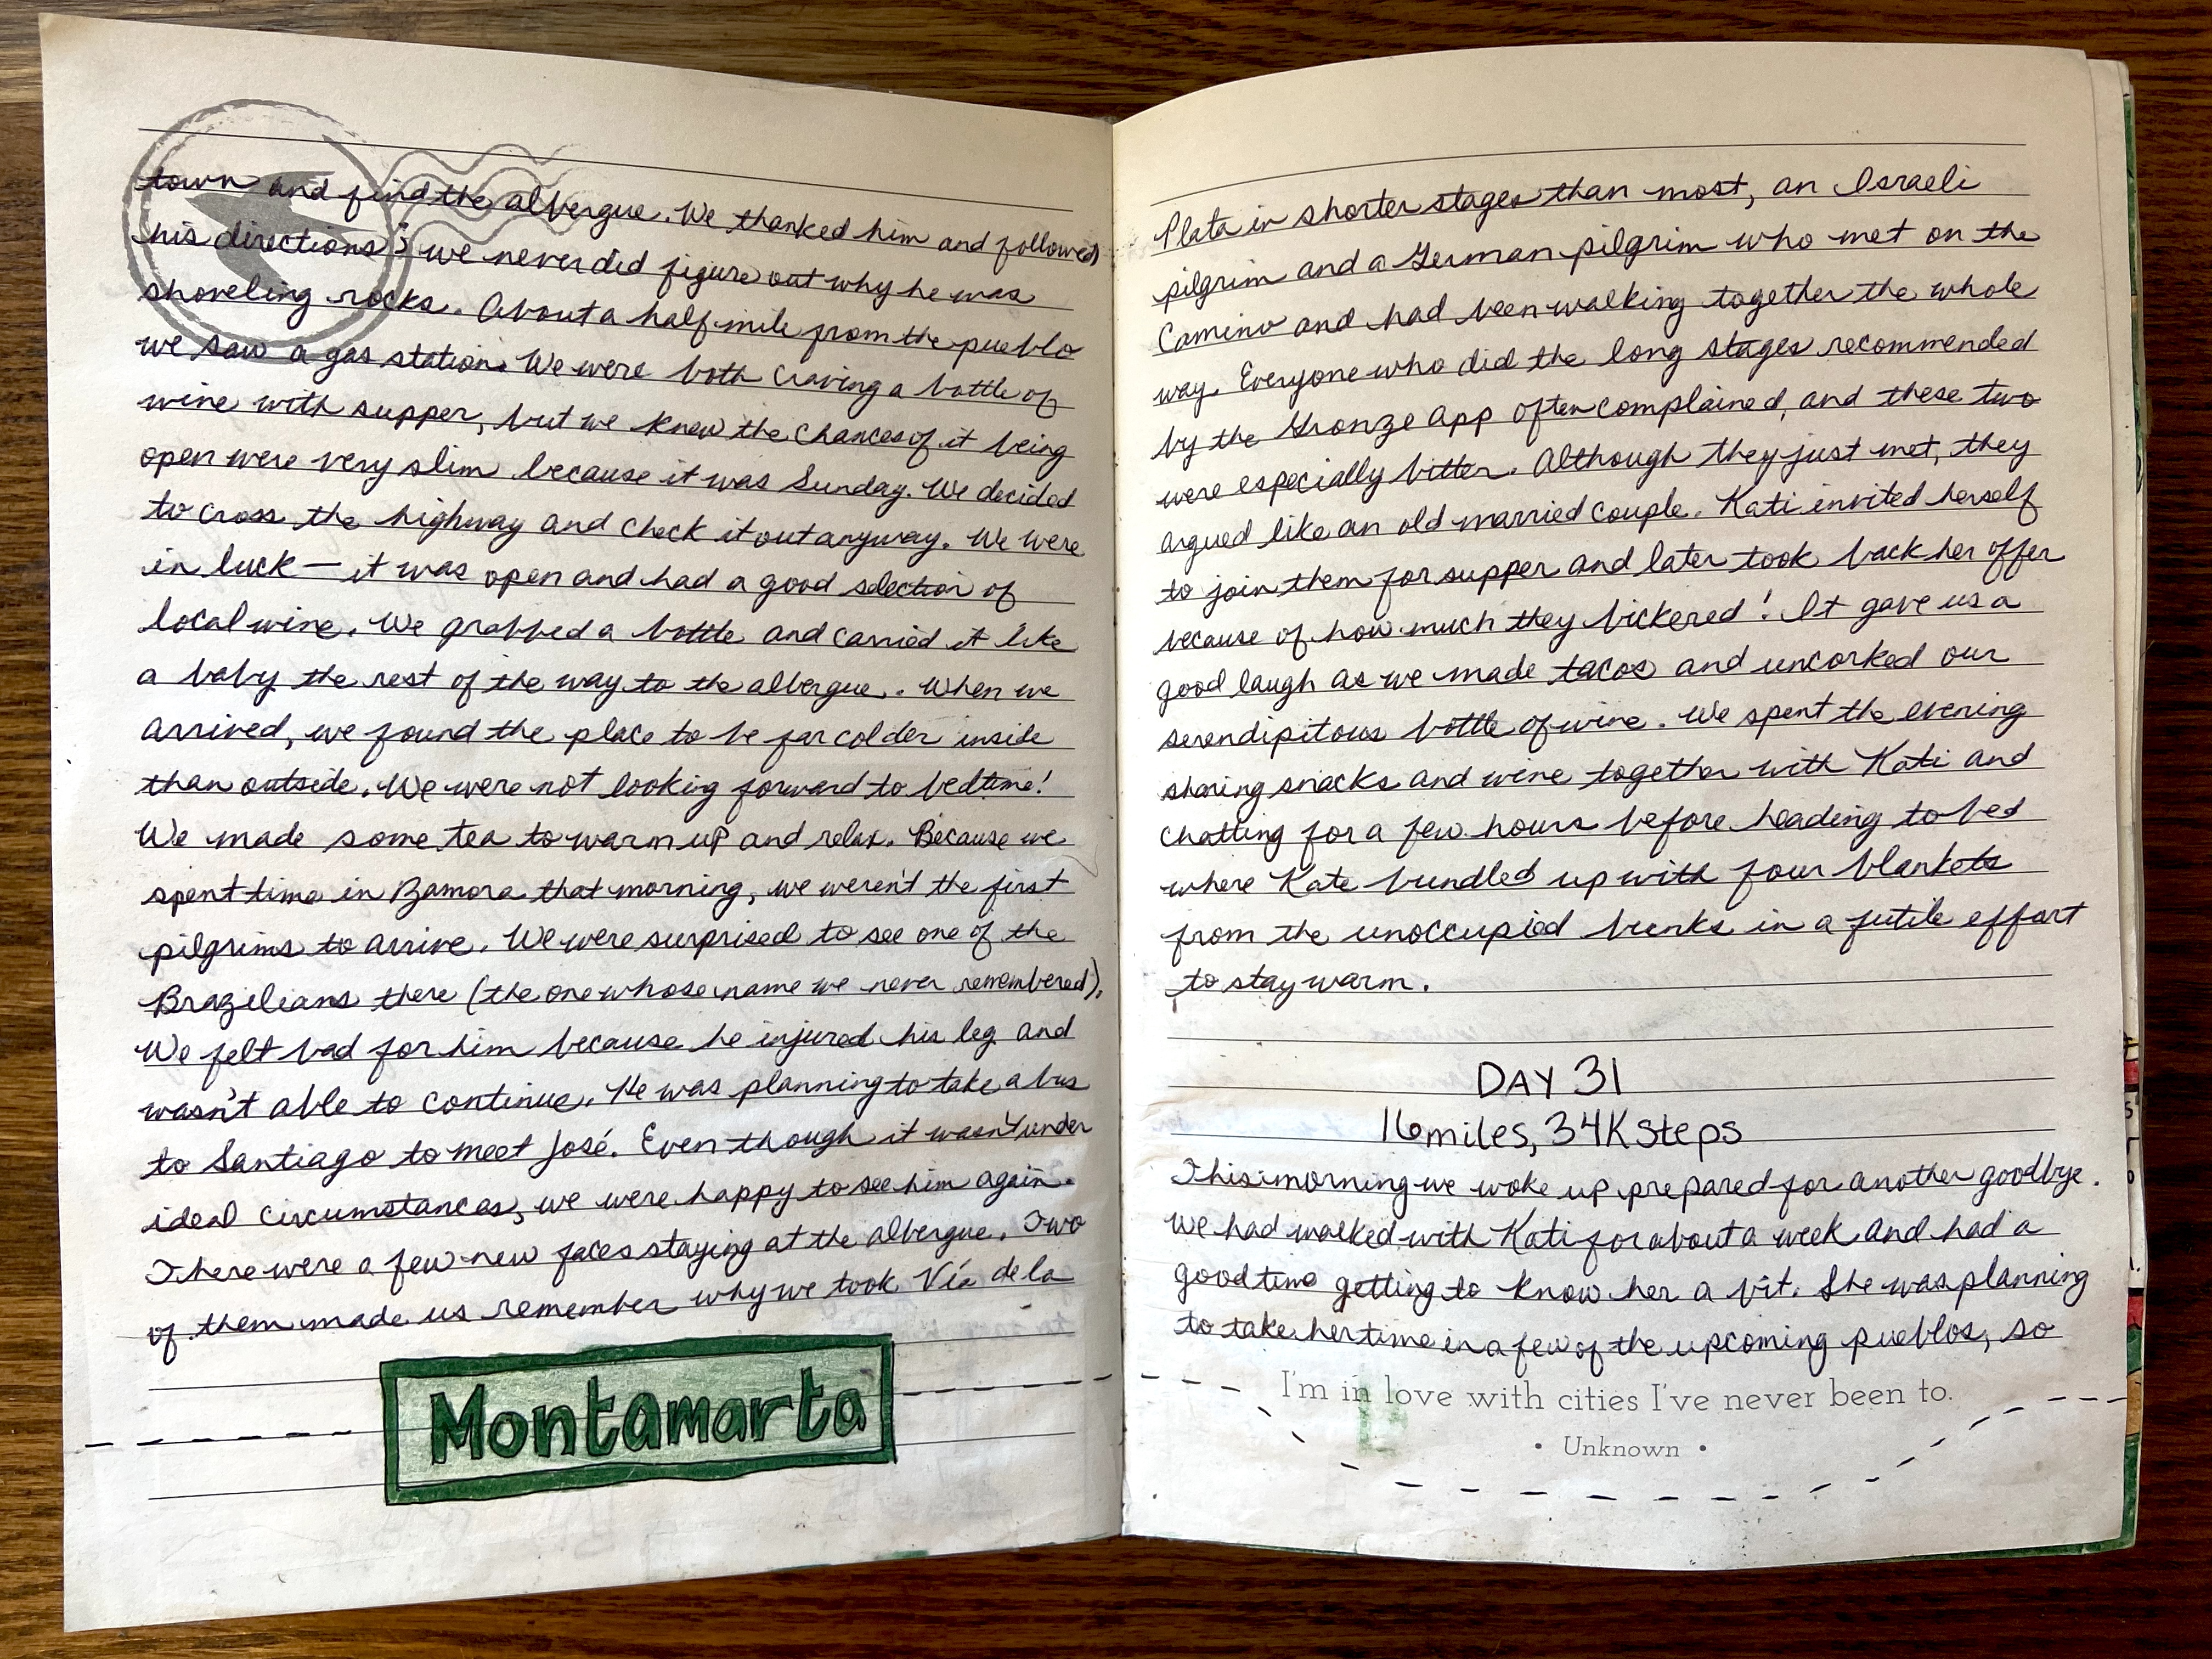 town and find the albergue. We thanked him and followed
his directions; we never did figure out why he was
shoveling rocks. About a half mile from the pueblo
we saw a gas station. We were both craving a bottle of
wine with supper, but we knew the chances of it being
open were very slim because it was Sunday. We decided
to cross the highway and check it out anyway. We were
in luck — it was open and had a good selection of
local wine. We grabbed a bottle and carried it like
a baby the rest of the way to the albergue. When we
arrived, we found the place to be far colder inside
than outside. We were not looking forward to bedtime!
We made some tea to warm up and relax. Because we
spent time in Zamora that morning, we weren't the first
pilgrims to arrive. We were surprised to see one of the
Brazilians there (the one whose name we never remembered).
We felt bad for him because he injured his leg and
wasn't able to continue. He was planning to take a bus
to Santiago to meet José. Even though it wasn't under
ideal circumstances, we were happy to see him again.
There were a few new faces staying at the albergue. Two
of them made us remember why we took Vía de la
Montamarta
Plata in shorter stages than most, an Israeli
pilgrim and a German pilgrim who met on the
Camino and had been walking together the whole
way. Everyone who did the long stages recommended
by the Gronze app often complained, and these two
were especially bitter. Although they just met, they
argued like an old married couple. Kati invited herself
to join them for supper and later took back her offer
because of how much they bickered! It gave us a
good laugh as we made tacos and uncorked our
serendipitous bottle of wine. We spent the evening
sharing snacks and wine together with Kati and
chatting for a few hours before heading to bed
where Kate bundled up with four blankets
from the unoccupied bunks in a futile effort
to stay warm.
DAY 31
16 miles, 34K steps
This morning we woke up prepared for another goodbye.
We had walked with Kati for about a week and had a
good time getting to know her a bit. She was planning
to take her time in a few of the upcoming pueblos, so
I'm in love with cities I've never been to.
• Unknown •